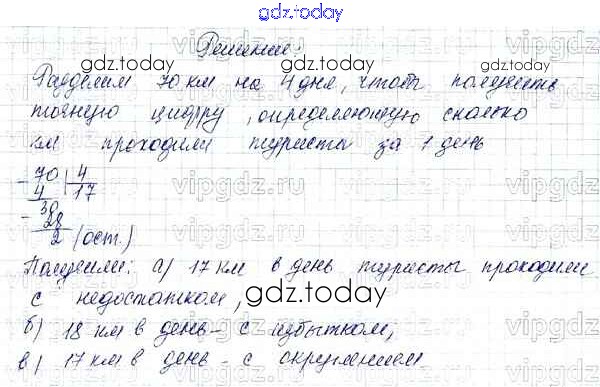 gdz.today
Решение:
gdz.today
Разделим 70 км на 4 дня, чтобы получить
точную цифру, определяющую сколько
км проходили туристы за 1 день
- 70 | 4
4 | 17
- 30
28
2 (ост.)
Получили: а) 17 км в день туристы проходили
с недостатком,
gdz.today
б) 18 км в день - с избытком;
в) 17 км в день - с округлением
vipgdz.ru
gdz.today